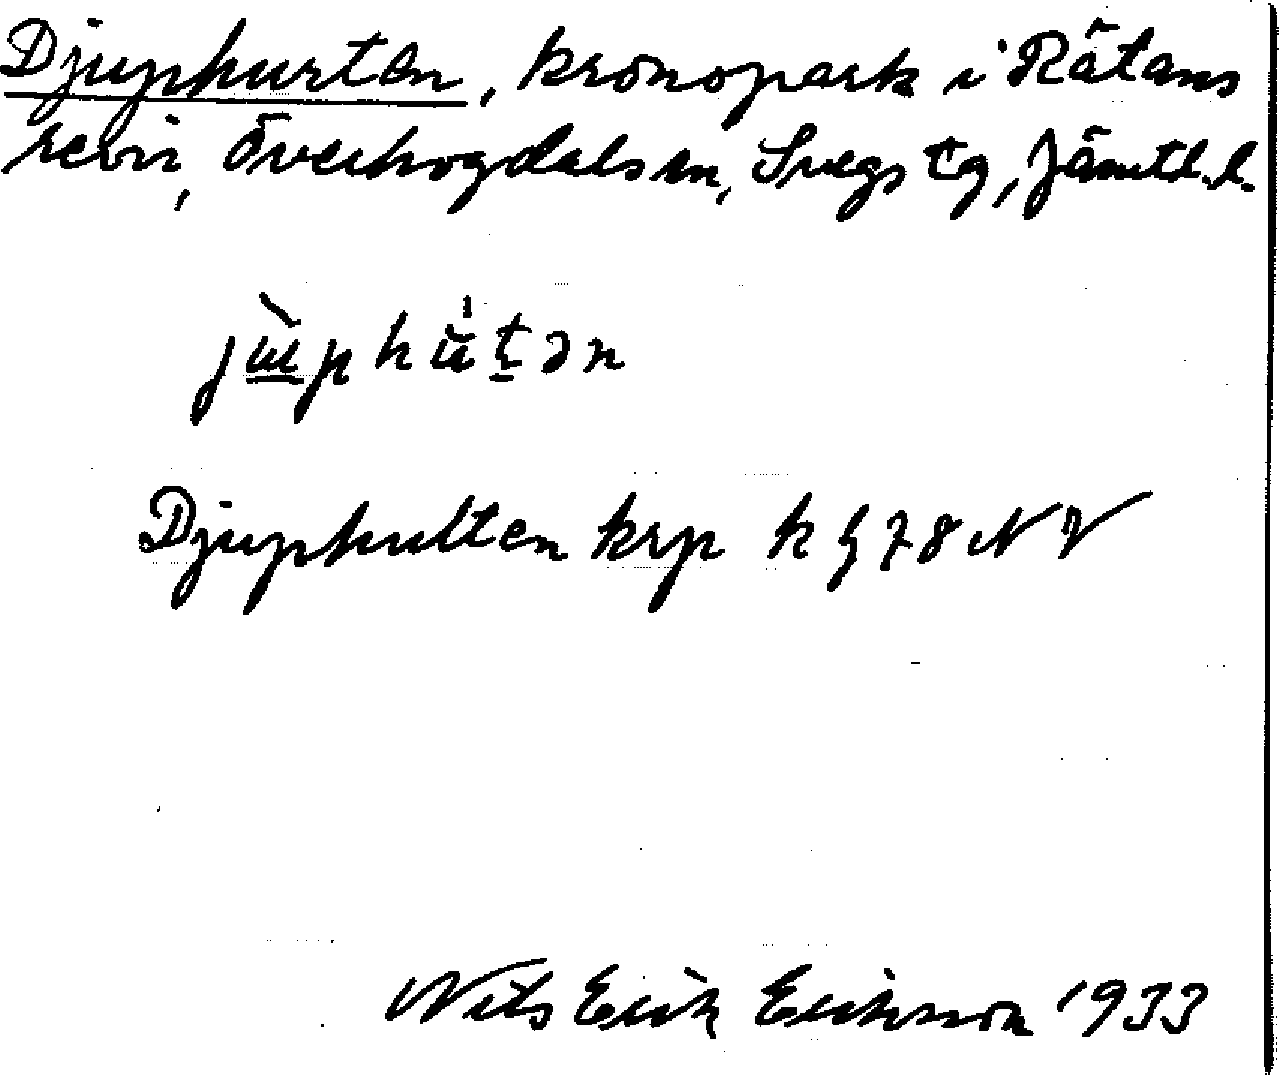 Djuphurten, kronopark i Rätans
revir, Överhogdals sn, Svegs tg, Jämtl. l.
Djuphulten krp k h 78 NV
Nils Erik Erikson 1933